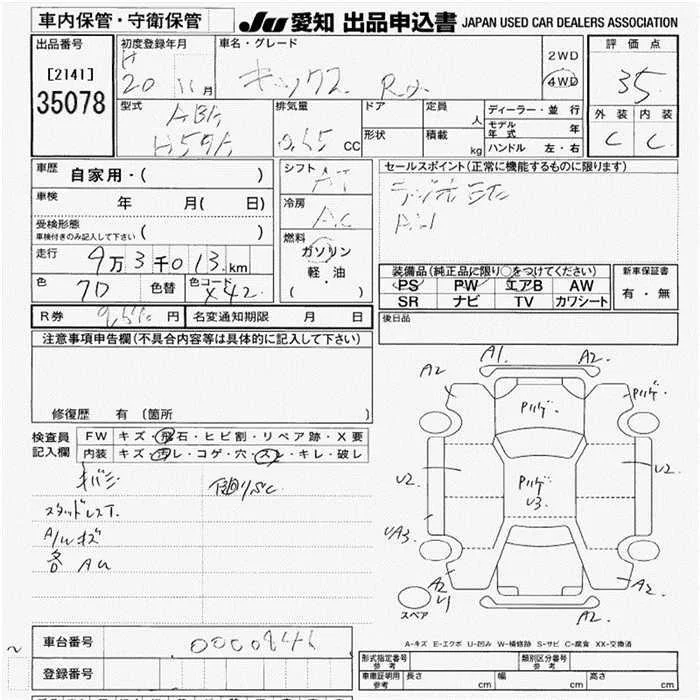 車内保管・守衛保管
JU 愛知 出品申込書 JAPAN USED CAR DEALERS ASSOCIATION
出品番号
[2141]
35078
初度登録年月
H
20 11 月
車名・グレード
キックス RX
2WD
4WD
評価点
35
外装 内装
C C
型式
ABA
H59A
排気量
0.65 cc
ドア
形状
定員
人
積載
kg
ディーラー・並行
モデル年式 年
ハンドル 左・右
車歴
自家用・( )
車検
年 月( 日)
受検形態
車検付きのみ記入して下さい ( )
走行
9万3千013.km
色
色替
色コード
X42
シフト
AT
冷房
AC
燃料
ガソリン
軽・油
( )
セールスポイント(正常に機能するものに限ります)
装備品(純正品に限り○をつけてください)
PS PW エアB AW
SR ナビ TV カワシート
新車保証書
有・無
R券 円
名変通知期限 月 日
後日品
注意事項申告欄(不具合内容等は具体的に記入して下さい)
修復歴 有 〔箇所 〕
検査員
記入欄
FW キズ・飛石・ヒビ割・リペア跡・X要
内装 キズ・汚レ・コゲ・穴・スレ・キレ・破レ
スタッドレスT.
A/Wキズ
各 AU
A1.
A2
A2.
Pハゲ
Pハゲ
U2
Pハゲ
U3
U2
UA3
A2
U1
A2
A2
スペア
A-キズ E-エクボ U-凹み W-補修跡 S-サビ C-腐食 XX-交換済
車台番号
登録番号
形式指定番号
参考
類別区分番号
参考
車庫証明用
参考
長さ cm
幅 cm
高さ cm